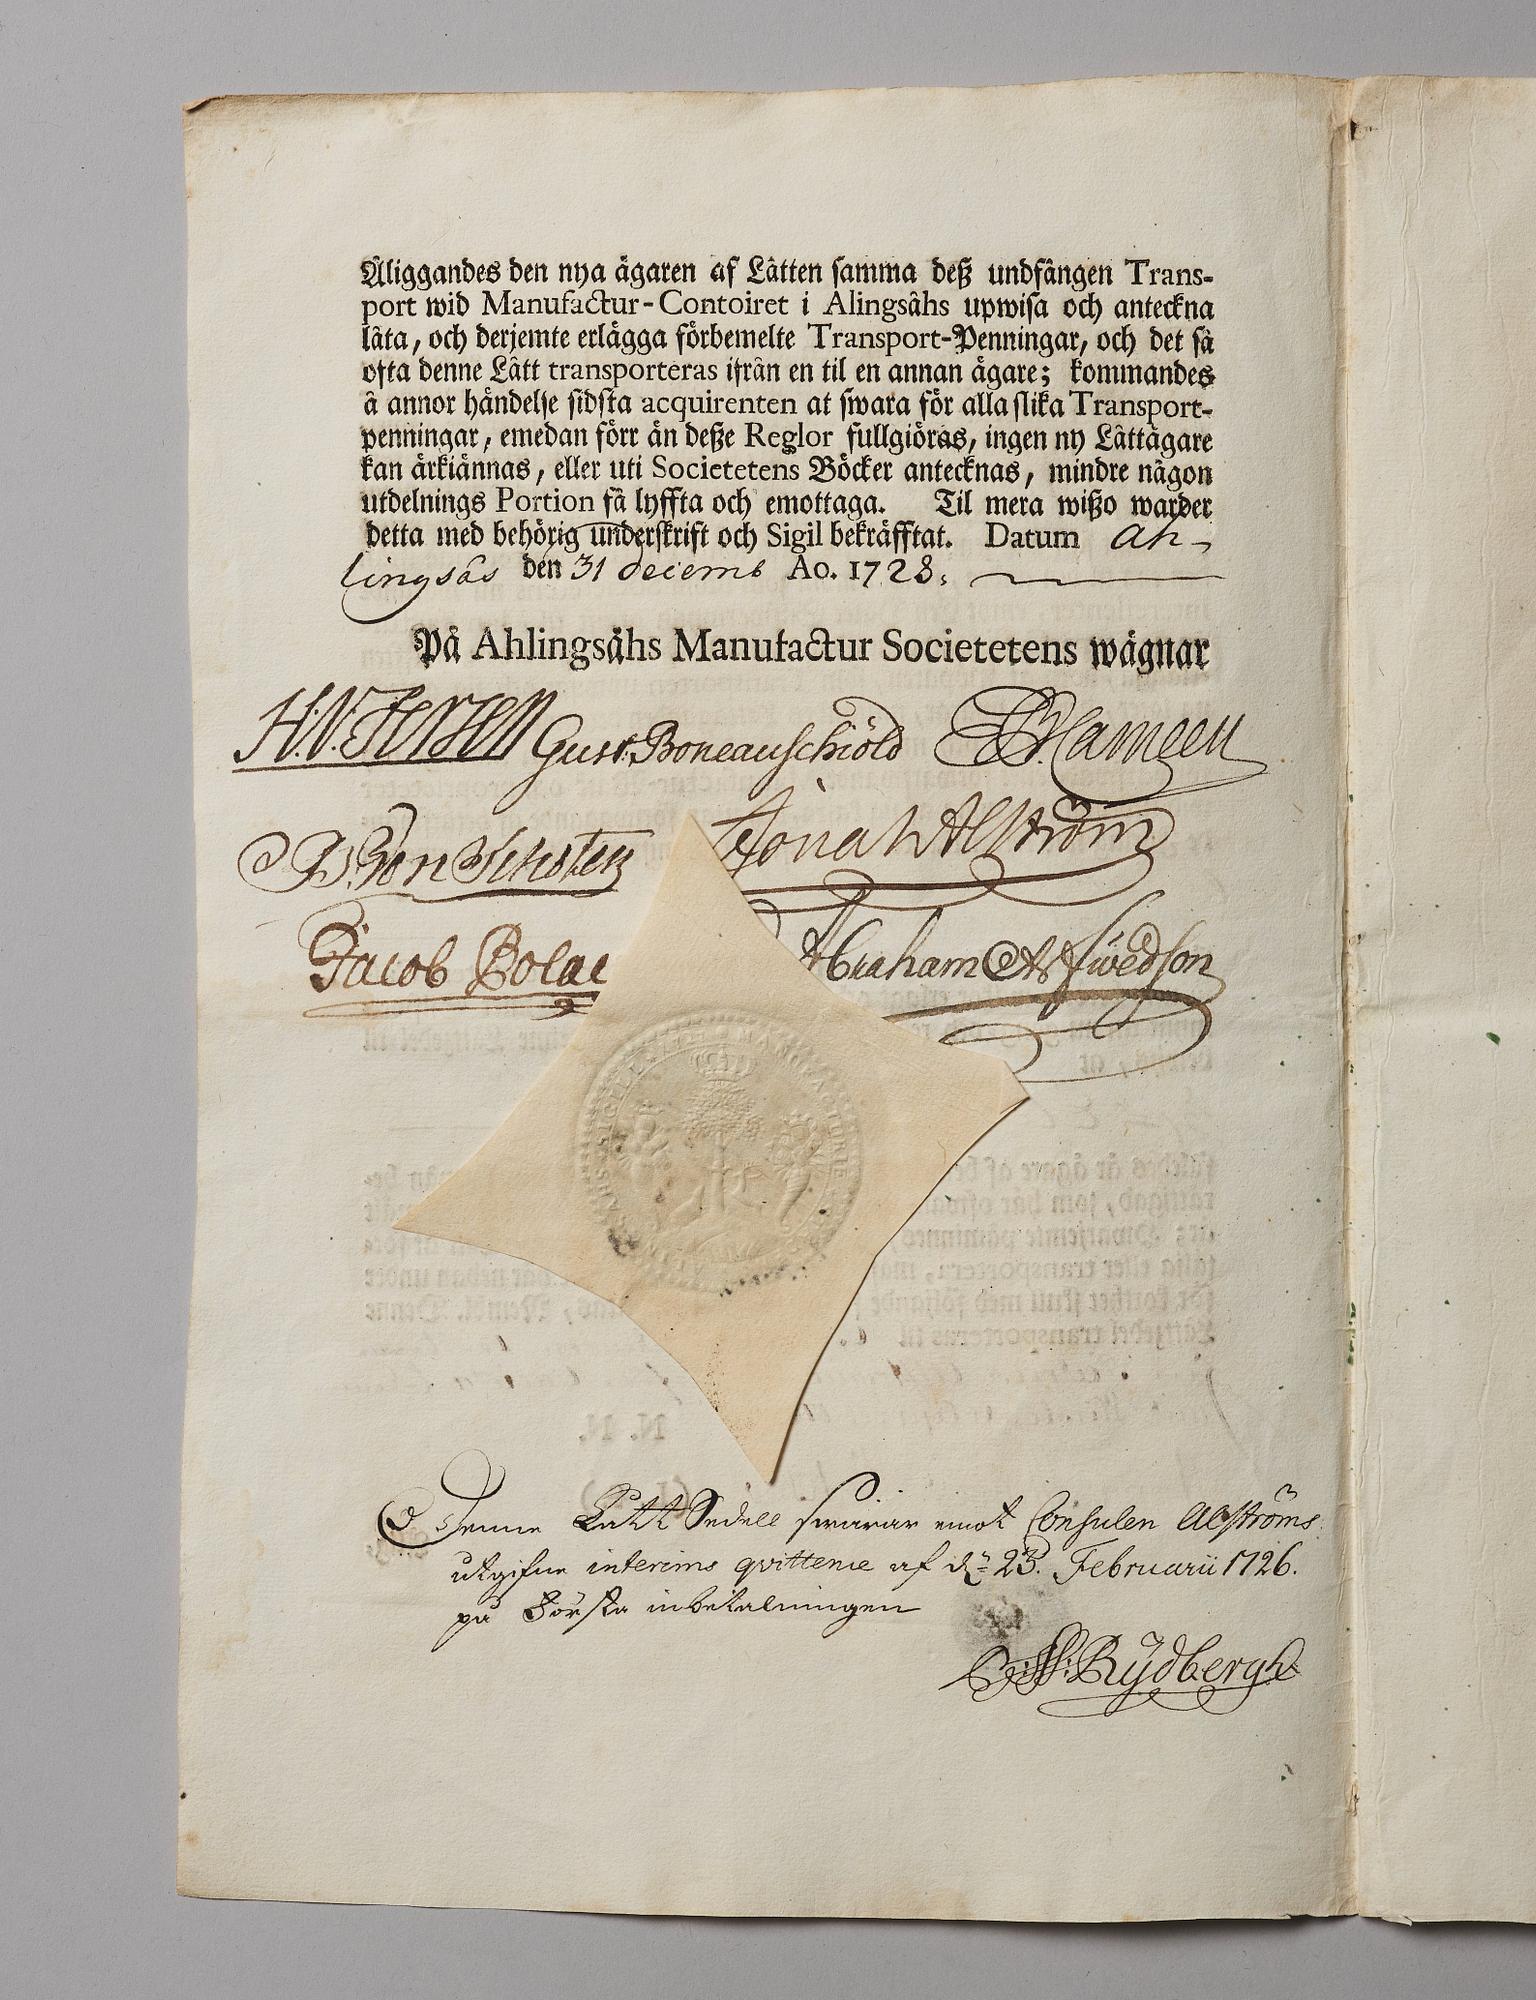 Åliggandes den nya ägaren af Låtten samma deß undfången Trans-
port wid Manufactur-Contoiret i Alingsåhs upwisa och anteckna
låta, och derjemte erlägga förbemelte Transport-Penningar, och det så
ofta denne Lått transporteras ifrån en til en annan ägare; kommandes
å annor händelse sidsta acquirenten at swara för alla slika Transport-
penningar, emedan förr än deße Reglor fullgiöras, ingen ny Låttägare
kan ärkiännas, eller uti Societetens Böcker antecknas, mindre någon
utdelnings Portion få lyffta och emottaga. Til mera wißo warder
detta med behörig underskrift och Sigil bekräfftat. Datum Ah-
lingsås den 31 decemb Ao. 1728.
På Ahlingsåhs Manufactur Societetens wägnar
H.V. Fersen Gust. Boneauschiöld Hameen
Jonas Alström
Jacob Bolac Abraham Arfwedson
Denne Lått Sedell swarar emot Consulen Alströms
utgifne interims qvittence af d. 23. Februarii 1726.
på Första inbetalningen
Rydbergh